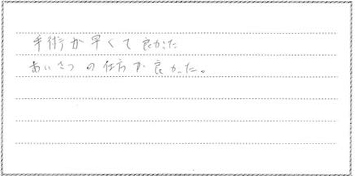 手術が早くて良かった
あいさつの仕方が良かった。